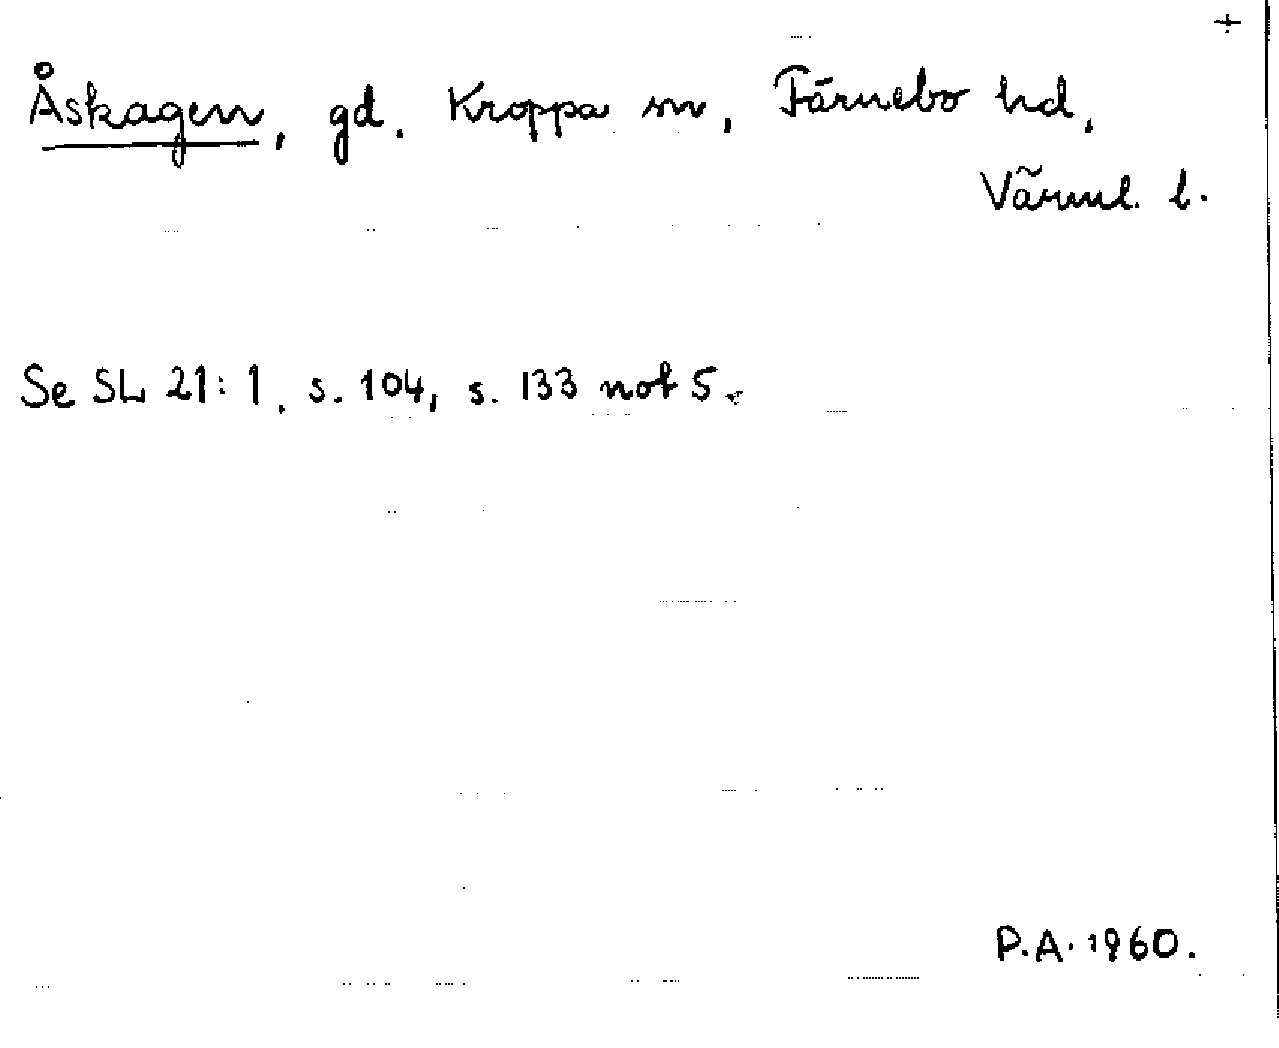 +
Åskagen, gd. Kroppa sn, Färnebo hd,
Värml. l.
Se SL 21:1, s. 104, s. 133 not 5.
P.A. 1960.